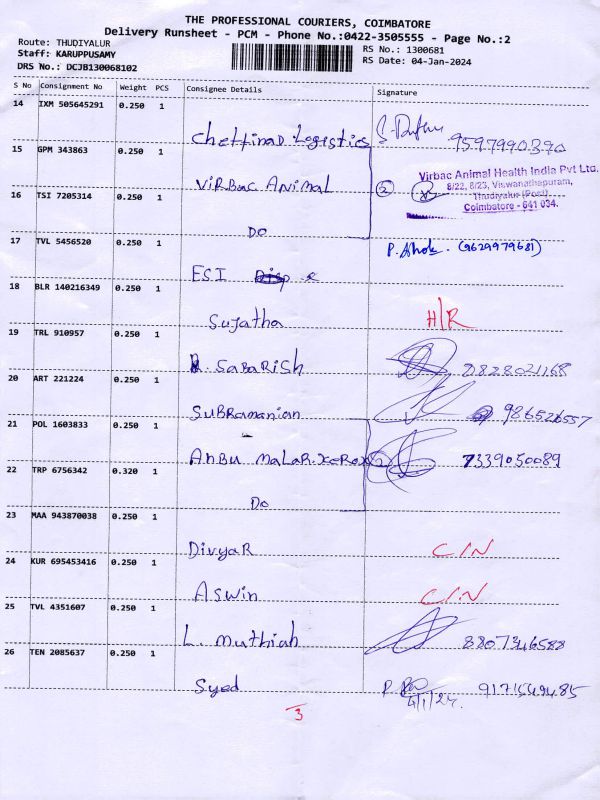 THE PROFESSIONAL COURIERS, COIMBATORE
Delivery Runsheet - PCM - Phone No.:0422-3505555 - Page No.:2
Route: THUDIYALUR
Staff: KARUPPUSAMY
DRS No.: DCJB130068102
RS No.: 1300681
RS Date: 04-Jan-2024
S No Consignment No Weight PCS Consignee Details Signature
14 IXM 505645291 0.250 1
Chettinad Logistics 9597990390
15 GPM 343863 0.250 1
Virbac Animal
Virbac Animal Health India Pvt Ltd.
8/22, 8/23, Viswanathapuram,
Thudiyalur (Post)
Coimbatore - 641 034.
16 TSI 7205314 0.250 1
DO
17 TVL 5456520 0.250 1
ESI P. Ashok (9629979681)
18 BLR 140216349 0.250 1
Sujatha H/R
19 TRL 910957 0.250 1
R. SABARISH
20 ART 221224 0.250 1
SUBRamanian 986526557
21 POL 1603833 0.250 1
Anbu Malar Xerox 7339050089
22 TRP 6756342 0.320 1
Do
23 MAA 943870038 0.250 1
Divya R C/N
24 KUR 695453416 0.250 1
Aswin C/N
25 TVL 4351607 0.250 1
L. Muthiah 8807346588
26 TEN 2085637 0.250 1
Syed 4/1/24. 9171549485
3